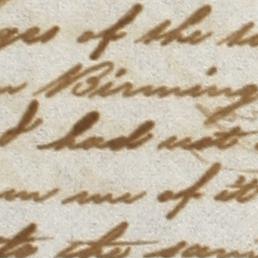 ges of the
Birming
I had not
me of it
to the same